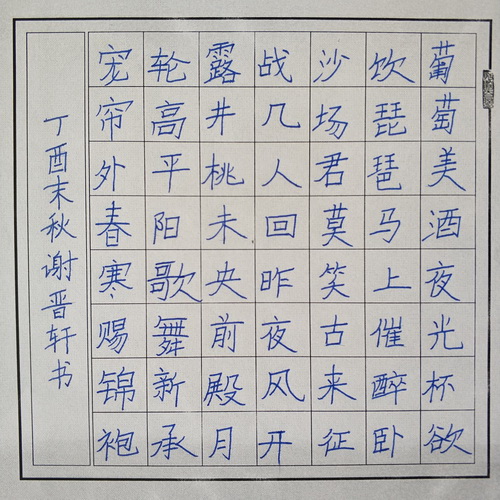 葡萄美酒夜光杯欲
饮琵琶马上催醉卧
沙场君莫笑古来征
战几人回昨夜风开
露井桃未央前殿月
轮高平阳歌舞新承
宠帘外春寒赐锦袍
丁酉末秋谢晋轩书